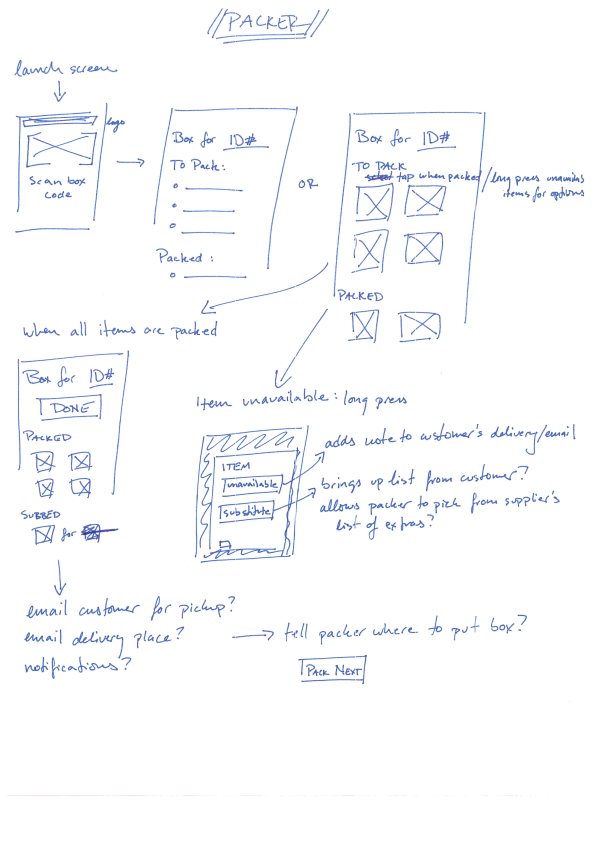 PACKER
launch screen
logo
Scan box
code
Box for ID#
To Pack:
Packed:
OR
Box for ID#
TO PACK
tap when packed / long press unavailable
items for options
PACKED
when all items are packed
Box for ID#
DONE
PACKED
SUBBED
for
Item unavailable: long press
ITEM
unavailable
substitute
adds note to customer's delivery/email
brings up list from customer?
allows packer to pick from supplier's
list of extras?
email customer for pickup?
email delivery place?
notifications?
tell packer where to put box?
PACK NEXT